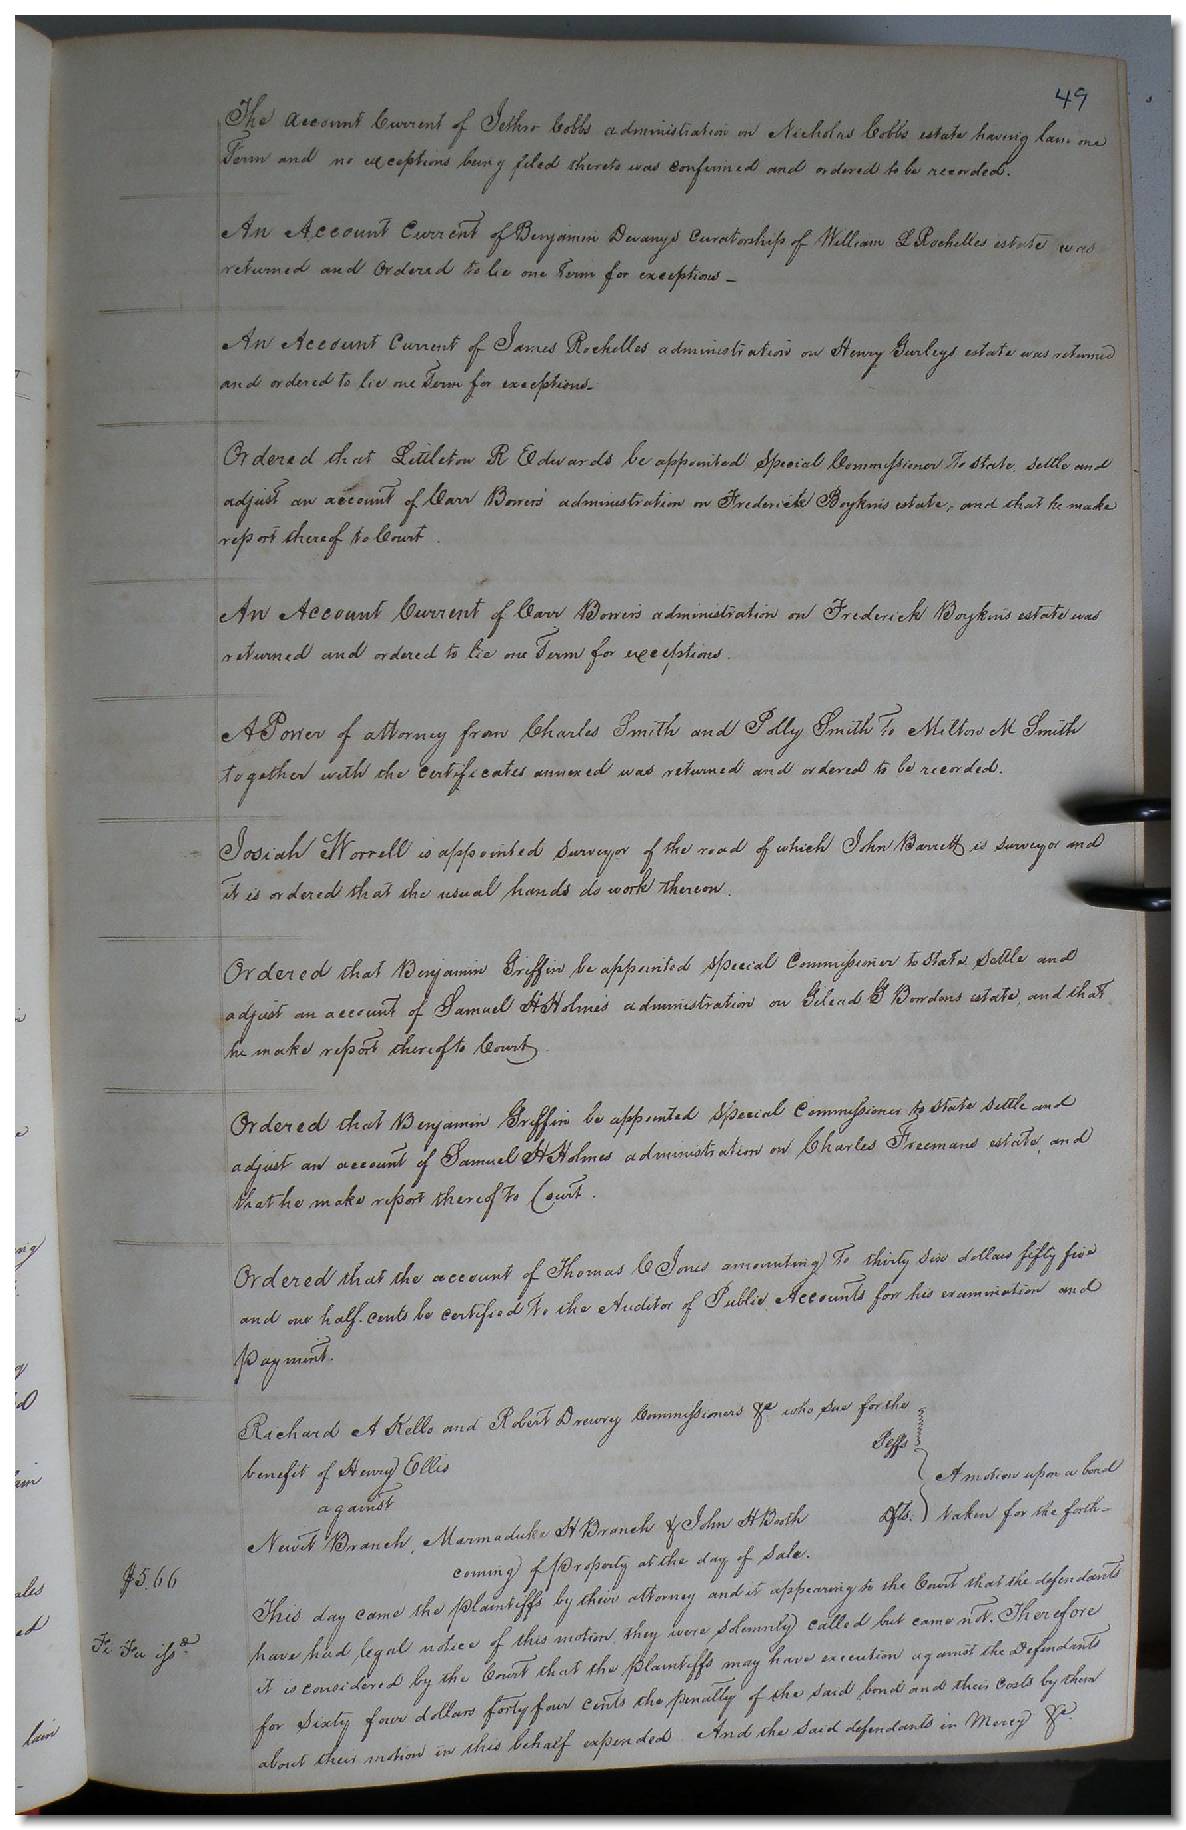 49
The Account Current of Jethro Cobbs administration on Nicholas Cobbs estate having lain one
Term and no exceptions being filed thereto was confirmed and ordered to be recorded.
An Account Current of Benjamin Devanys Curatorship of William L Rochelles estate was
returned and Ordered to lie one Term for exceptions _
An Account Current of James Rochelles administration on Henry Gurleys estate was returned
and ordered to lie one Term for exceptions_
Ordered that Littleton R Edwards be appointed Special Commissioner To State, Settle and
adjust an account of Carr Bowers' administration on Frederick Boykins estate, and that he make
report thereof to Court.
An Account Current of Carr Bowers administration on Frederick Boykins estate was
returned and ordered to lie one Term for exceptions.
A Power of attorney from Charles Smith and Polly Smith To Milton M Smith
together with the certificates annexed was returned and ordered to be recorded.
Josiah Worrell is appointed Surveyor of the road of which John Barrett is surveyor and
it is ordered that the usual hands do work thereon.
Ordered that Benjamin Griffin be appointed Special Commissioner to State Settle and
adjust an account of Samuel H Holmes administration on Gilead G Bowdens estate, and that
he make report thereof to Court
Ordered that Benjamin Griffin be appointed Special Commissioner to State Settle and
adjust an account of Samuel H Holmes administration on Charles Freemans estate, and
that he make report thereof to Court.
Ordered that the account of Thomas C Jones amounting To thirty six dollars fifty five
and one half cents be certified To the Auditor of Public Accounts for his examination and
payment.
Richard A Kello and Robert Drewry Commissioners &c who sue for the
benefit of Henry Ellis Plffs
against
A motion upon a bond
Newit Branch, Marmaduke H Branch & John H Booth Dfts. taken for the forth-
coming of property at the day of Sale.
$5.66
This day came the plaintiffs by their attorney and it appearing to the Court that the defendants
have had legal notice of this motion, they were solemnly called but came not. Therefore
Fi Fa issd
it is considered by the Court that the plaintiffs may have execution against the Defendants
for Sixty four dollars forty four cents the penalty of the said bond and their costs by them
about their motion in this behalf expended. And the said defendants in Mercy &c.